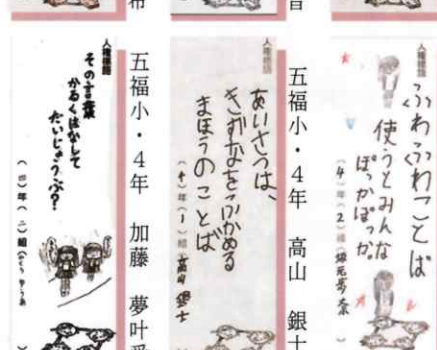 人権標語
ふわふわことば
使うとみんな
ぽっかぽっか
(4)年(2)組
五福小・4年 高山 銀士
人権標語
あいさつは、
きずなをふかめる
まほうのことば
(4)年(1)組 高山 銀士
五福小・4年 加藤 夢叶
人権標語
その言葉
かるくはなして
だいじょうぶ?
(四)年(二)組